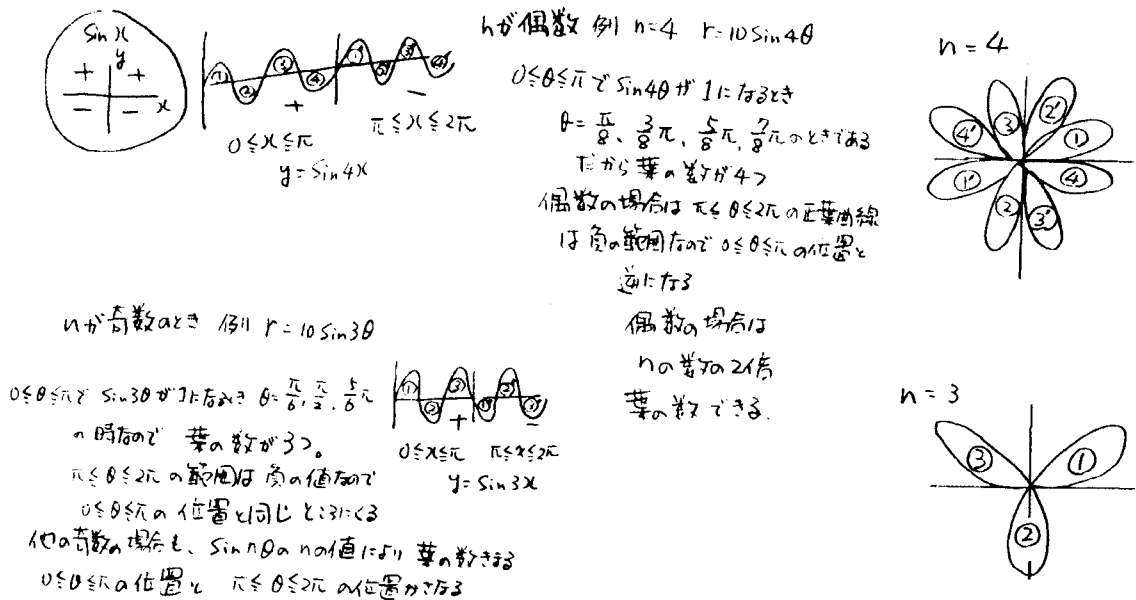 sin x
y
+ +
− − x
① ② ③ ④ ①' ②' ③' ④'
+ −
0≦x≦π π≦x≦2π
y=sin4x
nが偶数 例 n=4 r=10sin4θ
0≦θ≦πで sin4θが 1になるとき
θ=π/8、3/8π、5/8π、7/8πのときである
だから 葉の数が4つ
偶数の場合は π≦θ≦2πの正葉曲線
は 負の範囲なので 0≦θ≦πの位置と
逆になる
偶数の場合は
nの数の2倍
葉の数 できる.
n=4
④' ③ ②' ①
①' ② ③' ④
nが奇数のとき 例 r=10sin3θ
0≦θ≦πで sin3θが1になるとき θ=π/6, π/2, 5/6π
の時なので 葉の数が3つ。
π≦θ≦2πの範囲は 負の値なので
0≦θ≦πの 位置と同じ ところにくる
他の奇数の場合も、sin nθのnの値により 葉の数きまる
0≦θ≦πの位置と π≦θ≦2πの位置かさなる
① ② ③ ①' ②' ③'
+ −
0≦x≦π π≦x≦2π
y=sin3x
n=3
③ ①
②